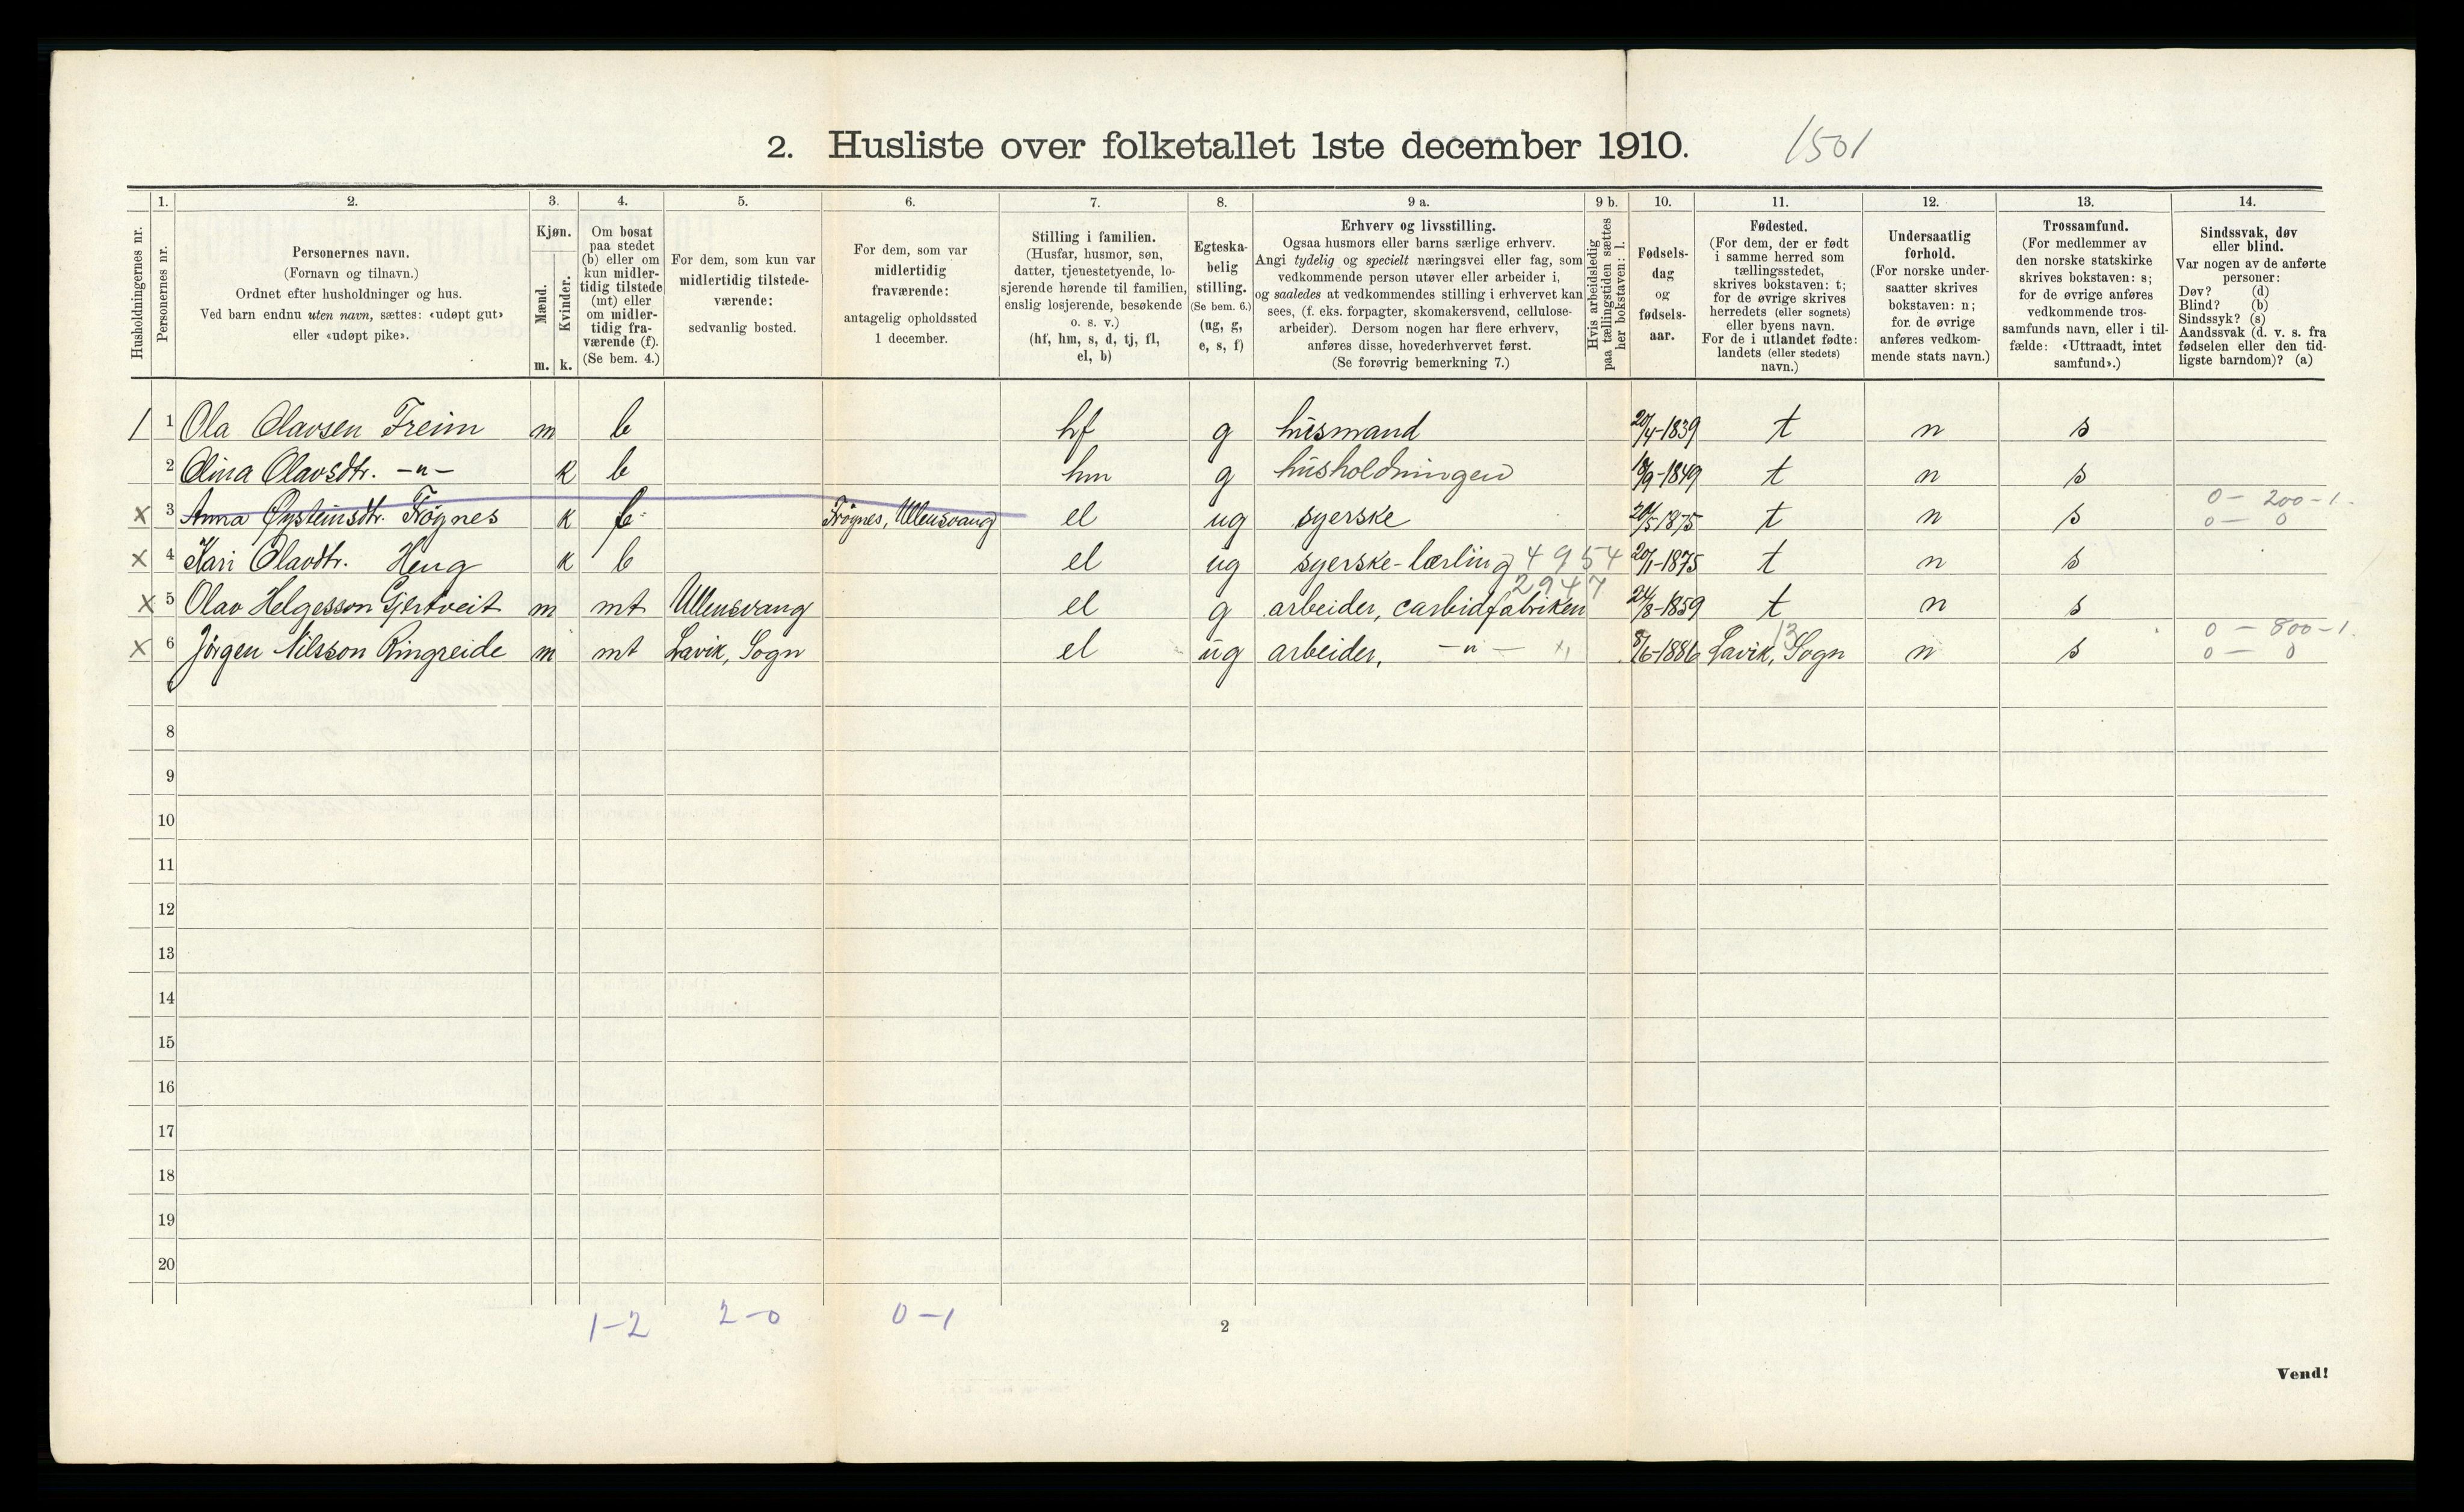 2. Husliste over folketallet 1ste december 1910.
1501
Husholdningernes nr.
1.
Personernes nr.
2.
Personernes navn.
(Fornavn og tilnavn.)
Ordnet efter husholdninger og hus.
Ved barn endnu uten navn, sættes: «udøpt gut»
eller «udøpt pike».
3.
Kjøn.
Mænd.
Kvinder.
m. k.
4.
Om bosat
paa stedet
(b) eller om
kun midler-
tidig tilstede
(mt) eller
om midler-
tidig fra-
værende (f).
(Se bem. 4.)
5.
For dem, som kun var
midlertidig tilstede-
værende:
sedvanlig bosted.
6.
For dem, som var
midlertidig
fraværende:
antagelig opholdssted
1 december.
7.
Stilling i familien.
(Husfar, husmor, søn,
datter, tjenestetyende, lo-
sjerende hørende til familien,
enslig losjerende, besøkende
o. s. v.)
(hf, hm, s, d, tj, fl,
el, b)
8.
Egteska-
belig
stilling.
(Se bem. 6.)
(ug, g,
e, s, f)
9 a.
Erhverv og livsstilling.
Ogsaa husmors eller barns særlige erhverv.
Angi tydelig og specielt næringsvei eller fag, som
vedkommende person utøver eller arbeider i,
og saaledes at vedkommendes stilling i erhvervet kan
sees, (f. eks. forpagter, skomakersvend, cellulose-
arbeider). Dersom nogen har flere erhverv,
anføres disse, hovederhvervet først.
(Se forøvrig bemerkning 7.)
9 b.
Hvis arbeidsledig
paa tællingstiden sættes
her bokstaven: l.
10.
Fødsels-
dag
og
fødsels-
aar.
11.
Fødested.
(For dem, der er født
i samme herred som
tællingsstedet,
skrives bokstaven: t;
for de øvrige skrives
herredets (eller sognets)
eller byens navn.
For de i utlandet fødte:
landets (eller stedets)
navn.)
12.
Undersaatlig
forhold.
(For norske under-
saatter skrives
bokstaven: n;
for de øvrige
anføres vedkom-
mende stats navn.)
13.
Trossamfund.
(For medlemmer av
den norske statskirke
skrives bokstaven: s;
for de øvrige anføres
vedkommende tros-
samfunds navn, eller i til-
fælde: «Uttraadt, intet
samfund».)
14.
Sindssvak, døv
eller blind.
Var nogen av de anførte
personer:
Døv? (d)
Blind? (b)
Sindssyk? (s)
Aandssvak (d. v. s. fra
fødselen eller den tid-
ligste barndom)? (a)
1 1 Ola Olavsen Freim m b hf g husmand 20/4-1839 t n s
2 Olina Olavsdtr. -"- k b hm g husholdningen 18/9-1849 t n s
0 - 200-1.
x 3 Anna Øysteinsdtr. Frøgnes k f Frøgnes, Ullensvang el ug syerske 20/5-1875 t n s 0 - 0
x 4 Kari Olavdtr. Heng k b el ug syerske-lærling 4954 20/11-1875 t n s
2947
x 5 Olav Helgesson Gjertveit m mt Ullensvang el g arbeider, carbidfabriken 24/8-1859 t n s
13 0 - 800-1.
x 6 Jörgen Nilsson Ringreide m mt Lavik, Sogn el ug arbeider, -"- 8/6-1886 Lavik, Sogn n s 0 - 0
8
9
10
11
12
13
14
15
16
17
18
19
20
1-2 2-0 0-1
2
Vend!